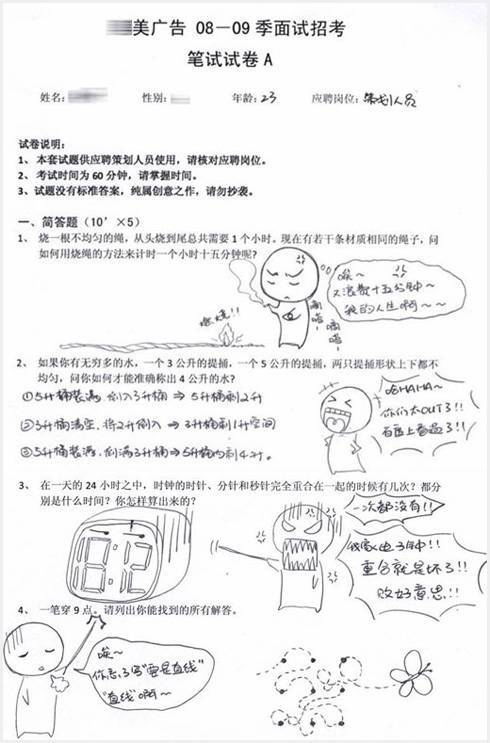 美广告 08－09季面试招考
笔试试卷A
姓名： 性别： 年龄：23 应聘岗位：策划人员
试卷说明：
1、本套试题供应聘策划人员使用，请核对应聘岗位。
2、考试时间为60分钟，请掌握时间。
3、试题没有标准答案，纯属创意之作，请勿抄袭。
一、简答题（10’×5）
1、烧一根不均匀的绳，从头烧到尾总共需要1个小时。现在有若干条材质相同的绳子，问
如何用烧绳的方法来计时一个小时十五分钟呢？
唉～
又浪费十五分钟～
我的人生啊～～
嘀嗒
嘀嗒
2、如果你有无穷多的水，一个3公升的提捅，一个5公升的提捅，两只提捅形状上下都不
均匀，问你如何才能准确称出4公升的水？
①5升桶装满，倒入3升桶 ⇒ 5升桶剩2升
②3升桶清空，将2升倒入 ⇒ 3升桶剩1升空间
③5升桶装满，倒满3升桶⇒5升桶内剩4升。
哈HAHA～
你们太OUT了!!
百度上看过了!!
3、在一天的24小时之中，时钟的时针、分针和秒针完全重合在一起的时候有几次？都分
别是什么时间？你怎样算出来的？
一次都没有!!
我家电子钟!!
重合就是坏了!!
败好意思!!
12
4、一笔穿9点。请列出你能找到的所有解答。
唉～
你忘了写“要是直线”
“直线”啊～